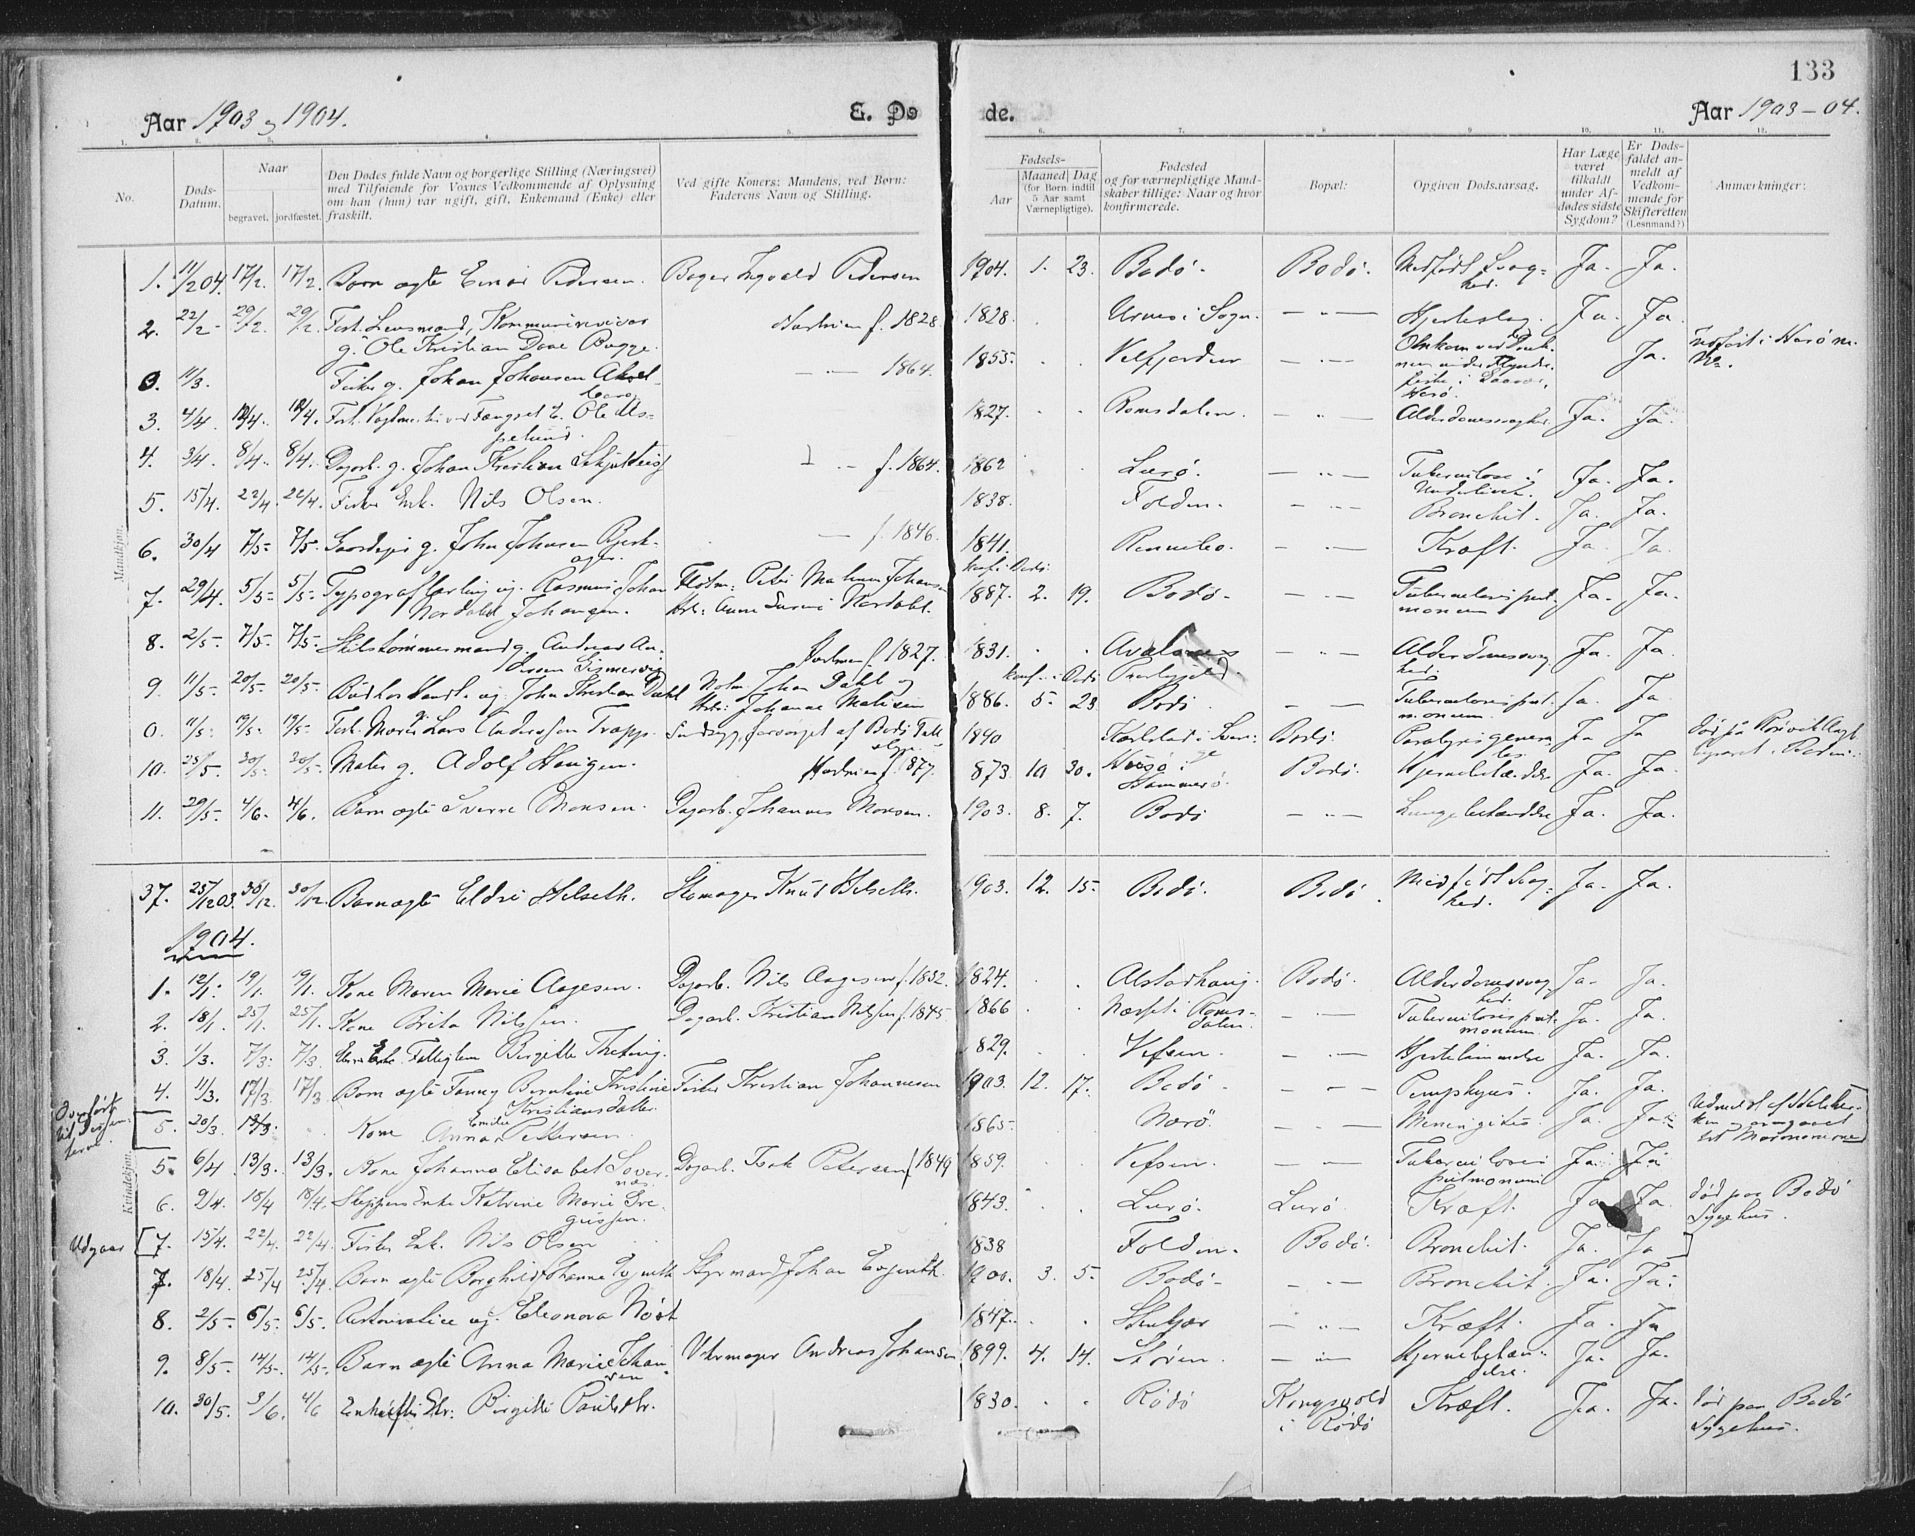 133
Aar 1903 og 1904. E. Dø de. Aar 1903-04.
1. 2. 3. 4. 5. 6. 7. 8. 9. 10. 11. 12.
No. Døds-Datum. Naar begravet. jordfæstet. Den Dødes fulde Navn og borgerlige Stilling (Næringsvei) med Tilføiende for Voxnes Vedkommende af Oplysning om han (hun) var ugift, gift, Enkemand (Enke) eller fraskilt. Ved gifte Koner: Mandens, ved Børn: Faderens Navn og Stilling. Fødsels- Aar Maaned Dag (for Børn indtil 5 Aar samt Værnepligtige). Fødested og for værnepligtige Mandskaber tillige: Naar og hvor konfirmerede. Bopæl: Opgiven Dødsaarsag. Har Læge været tilkaldt under Afdødes sidste Sygdom? Er Dødsfaldet anmeldt af Vedkommende for Skifteretten (Lensmand?) Anmærkninger:
Mandkjøn.
1. 11/2 04. 17/2. 17/2. Barn ægte Einar Pedersen. Bager Ingvald Pedersen 1904. 1. 23. Bodø. Bodø. Medfødt Svag-
hed. Ja. Ja.
2. 22/2 - 29/2. 29/2. Fort. Lensmand, Kommunerevisor
g. Ole Kristian Dane Bugge. Hustruen f. 1828. 1828. i Sogn. — " — Hjerteslag. Ja. Ja.
11/3. Fisker g. Johan Johansen — " — 1864. 1855. Velfjorden Ja.
3. 4/4. 12/4. 12/4. Ole As-
pelund. 1827. Romsdalen. — " — Alderdomssvaghed. Ja. Ja.
4. 3/4. 8/4. 8/4. Dagarb. g. Johan Kristian — " — f. 1864. 1862 Lurø. — " — Tuberculose i
Underlivet. Ja. Ja.
5. 15/4. 22/4. 22/4. Fisker Enk. Nils Olsen. 1838. Folden. — " — Bronchit. Ja. Ja.
6. 30/4 7/5 - 7/5. Gaardeier g. John Johnsen Bjerk-
ager. — f. 1846. 1841. Rennebo. — " — Kræft. Ja. Ja.
7. 29/4. 5/5 - 5/5 - Typograflærling ug. Rasmus Johan
Nordahl Johansen. 1887. 2. 19. Bodø. — " — Tuberculosis pul-
monum Ja. Ja.
8. 2/5 - 7/5 - 7/5 - Skibstømmermand g. Andreas An-
dersen Hustruen f. 1827. 1831. — " — Alderdomssvag
hed. Ja. Ja.
9. 11/5 - 20/5 - 20/5 - ug. John Kristian Dahl Johan Dahl og
Johanne Matisen 1886. 5. 23 Bodø — " — Tuberculosis pul-
monum. Ja. Ja
0. 11/5. 19/5. 19/5 - Lars Andersen Trapp. Sindssyg, forsørget af Bodø 1840 Karlstad i Sver-
ige Bodø. Paralysis genera-
lis Ja Ja
10. 25/5. 30/5. 30/5. Maler g. Adolf Haugen. Hustruen f. 1877. 873. 10 30. Hammerø. Bodø. Hjernebetændelse Ja. Ja.
11. 29/5. 4/6. 4/6. Barn ægte Sverre Monsen. Dagarb. Johannes Monsen. 1903. 8. 7. Bodø — " — Lungebetændelse Ja. Ja.
37. 25/12 03. 30/12. 30/12. Barn ægte Eldri Helseth. Skomager Knut Helseth. 1903. 12. 15. Bodø. Bodø. Medfødt Svag-
hed. Ja. Ja.
1904.
Kvindekjøn.
1. 12/1. 19/1. 19/1. Kone Maren Marie Aagesen. Dagarb. Nils Aagesen f. 1832. 1824. Alstadhaug. Bodø. Alderdomssvag
hed. Ja. Ja.
2. 18/1. 25/1. 25/1. Kone Brita Nilssen. Dagarb. Kristian Nilssen f. 1845 1866 Næsset i Roms-
dalen. — " — Tuberculosis pul-
monum. Ja. Ja.
3. 1/3. 7/3. 7/3. Birgitte 1829. Vefsen. — " — Ja. Ja.
4. 11/3. 17/3. 17/3 Barn ægte Fanny Berntine Kristine
Kristiansdatter. Fisker Kristian Johannesen 1903. 12. 17. Bodø. — " — Pemphigus. Ja. Ja.
Overført
til
5. 20/3. Kone Anna Emilie Pettersen. 1865 - Nærø. — " — Meningitis. Ja. Ja. Udmeldt af
og overgaaet
til Mormonerne
5. 6/4 13/3. 13/3. Kone Johanna Elisabet Dagarb. Isak Petersen f. 1849 1859. Vefsen. — " — Tuberculosis
pulmonum Ja. Ja
6. 9/4. 18/4 18/4. Skippers Enke Katrine Marie Gre-
gussen. 1843. Lurø. Lurø. Kræft. Ja. Ja. død paa Bodø
Sygehus.
Udgaar 7. 15/4. 22/4. 22/4 Fisker Enk. Nils Olsen 1838 Folden. Bodø. Bronchit. Ja. Ja
7. 18/4. 25/4 25/4. Barn ægte Borghild Johanne Styrmand Johan 1900. 3. 5. Bodø - — " — Bronchit. Ja. Ja.
8. 2/5 - 6/5 - 6/5. ug. Eleonora 1847. Stenkjær — " — Kræft. Ja. Ja
9. 8/5 - 14/5. 14/5. Barn ægte Anna Marie Johan-
sen Uhrmager Andreas Johansen 1899. 4. 14. Støren. — " — Hjernebetæn-
delse. Ja. Ja.
10. 30/5. 3/6. 4/6 Birgitte Paulsdtr. 1830. Rødø Kongsvold
i Rødø Kræft. Ja. Ja. død paa Bodø
Sygehus.